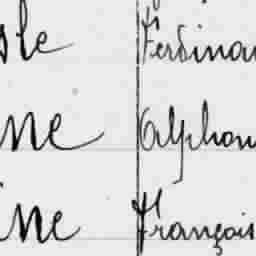 sle Ferdinan
ne Alphon
ine François